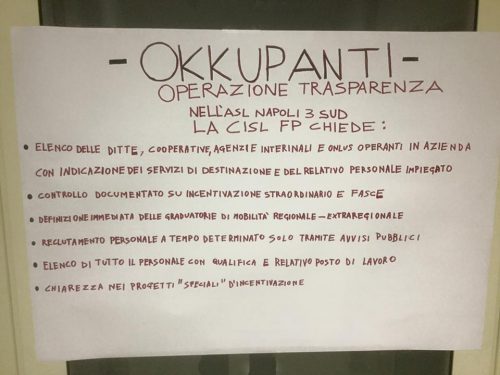 - OKKUPANTI -
OPERAZIONE TRASPARENZA
NELL'ASL NAPOLI 3 SUD
LA CISL FP CHIEDE:
• ELENCO DELLE DITTE, COOPERATIVE, AGENZIE INTERINALI E ONLUS OPERANTI IN AZIENDA
CON INDICAZIONE DEI SERVIZI DI DESTINAZIONE E DEL RELATIVO PERSONALE IMPIEGATO
• CONTROLLO DOCUMENTATO SU INCENTIVAZIONE STRAORDINARIO E FASCE
• DEFINIZIONE IMMEDIATA DELLE GRADUATORIE DI MOBILITA' REGIONALE - EXTRAREGIONALE
• RECLUTAMENTO PERSONALE A TEMPO DETERMINATO SOLO TRAMITE AVVISI PUBBLICI
• ELENCO DI TUTTO IL PERSONALE CON QUALIFICA E RELATIVO POSTO DI LAVORO
• CHIAREZZA NEI PROGETTI "SPECIALI" D'INCENTIVAZIONE